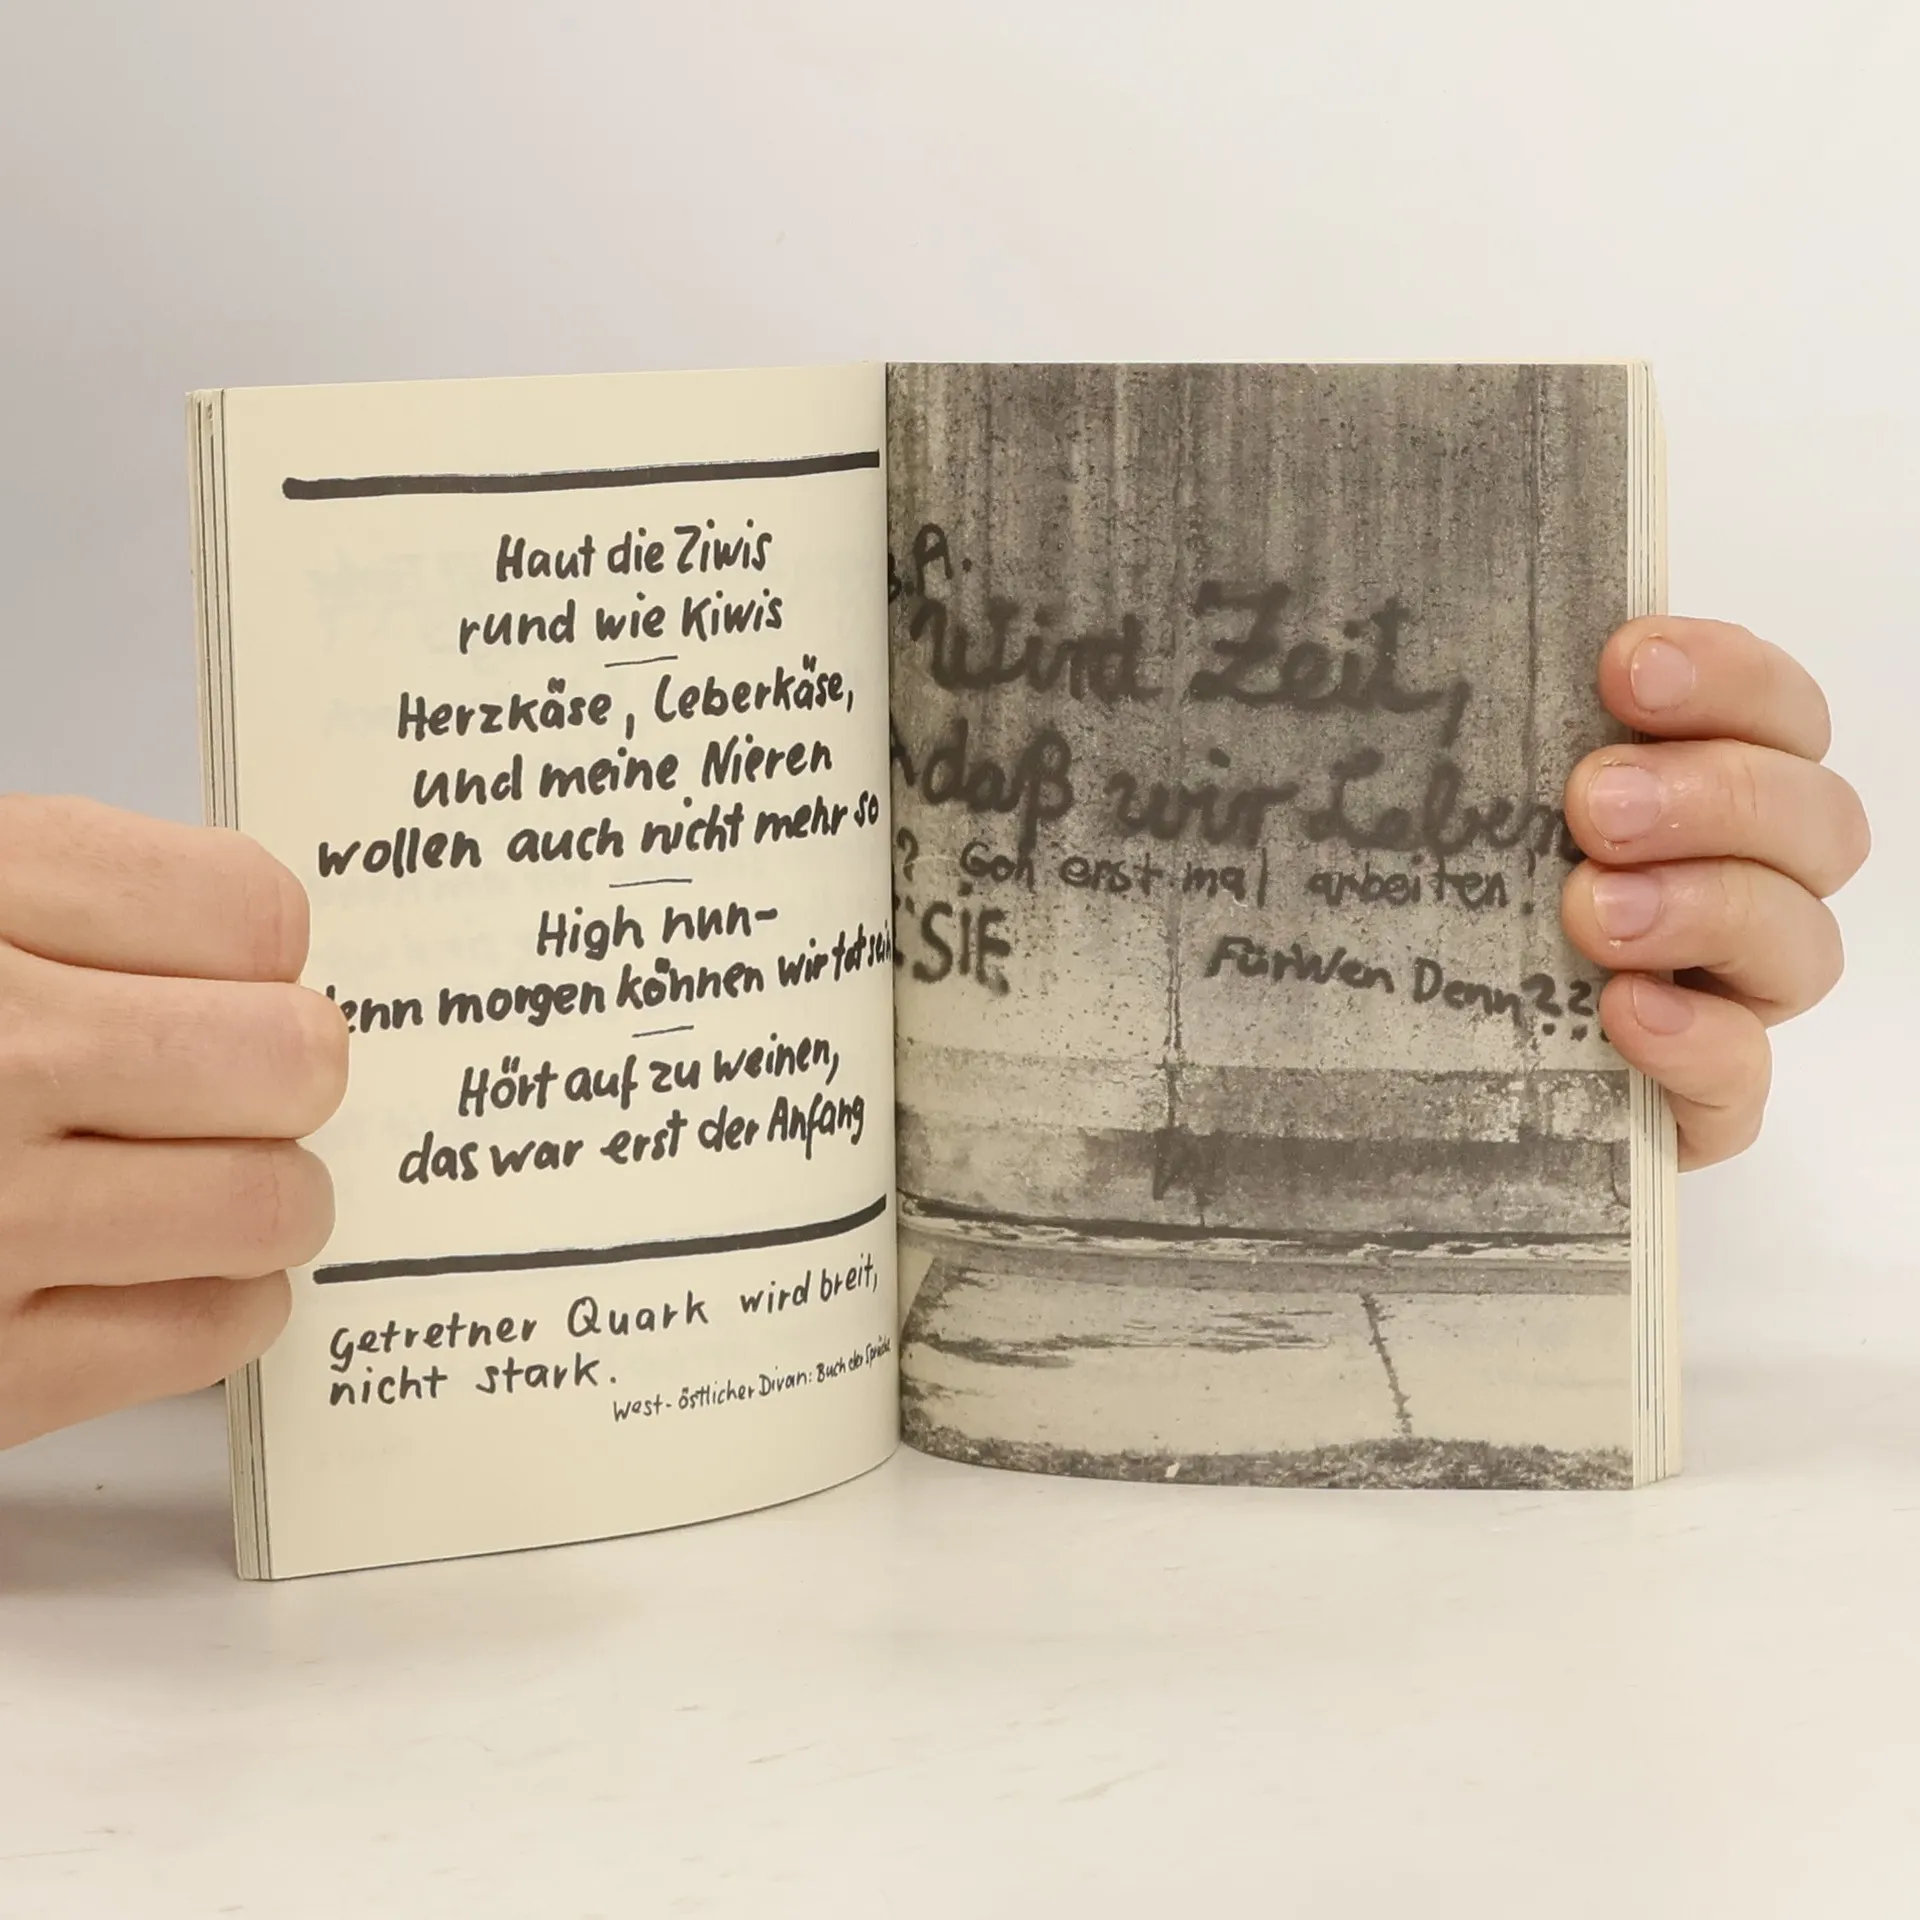 Haut die Ziwis
rund wie Kiwis
Herzkäse, Leberkäse,
und meine Nieren
wollen auch nicht mehr so
High nun-
denn morgen können wir tot sein
Hört auf zu weinen,
das war erst der Anfang
getretner Quark wird breit,
nicht stark.
West-östlicher Divan: Buch der Sprüche
Wird Zeit,
daß wir Leben
? Geh erst mal arbeiten!
SIE
Für Wen Denn???